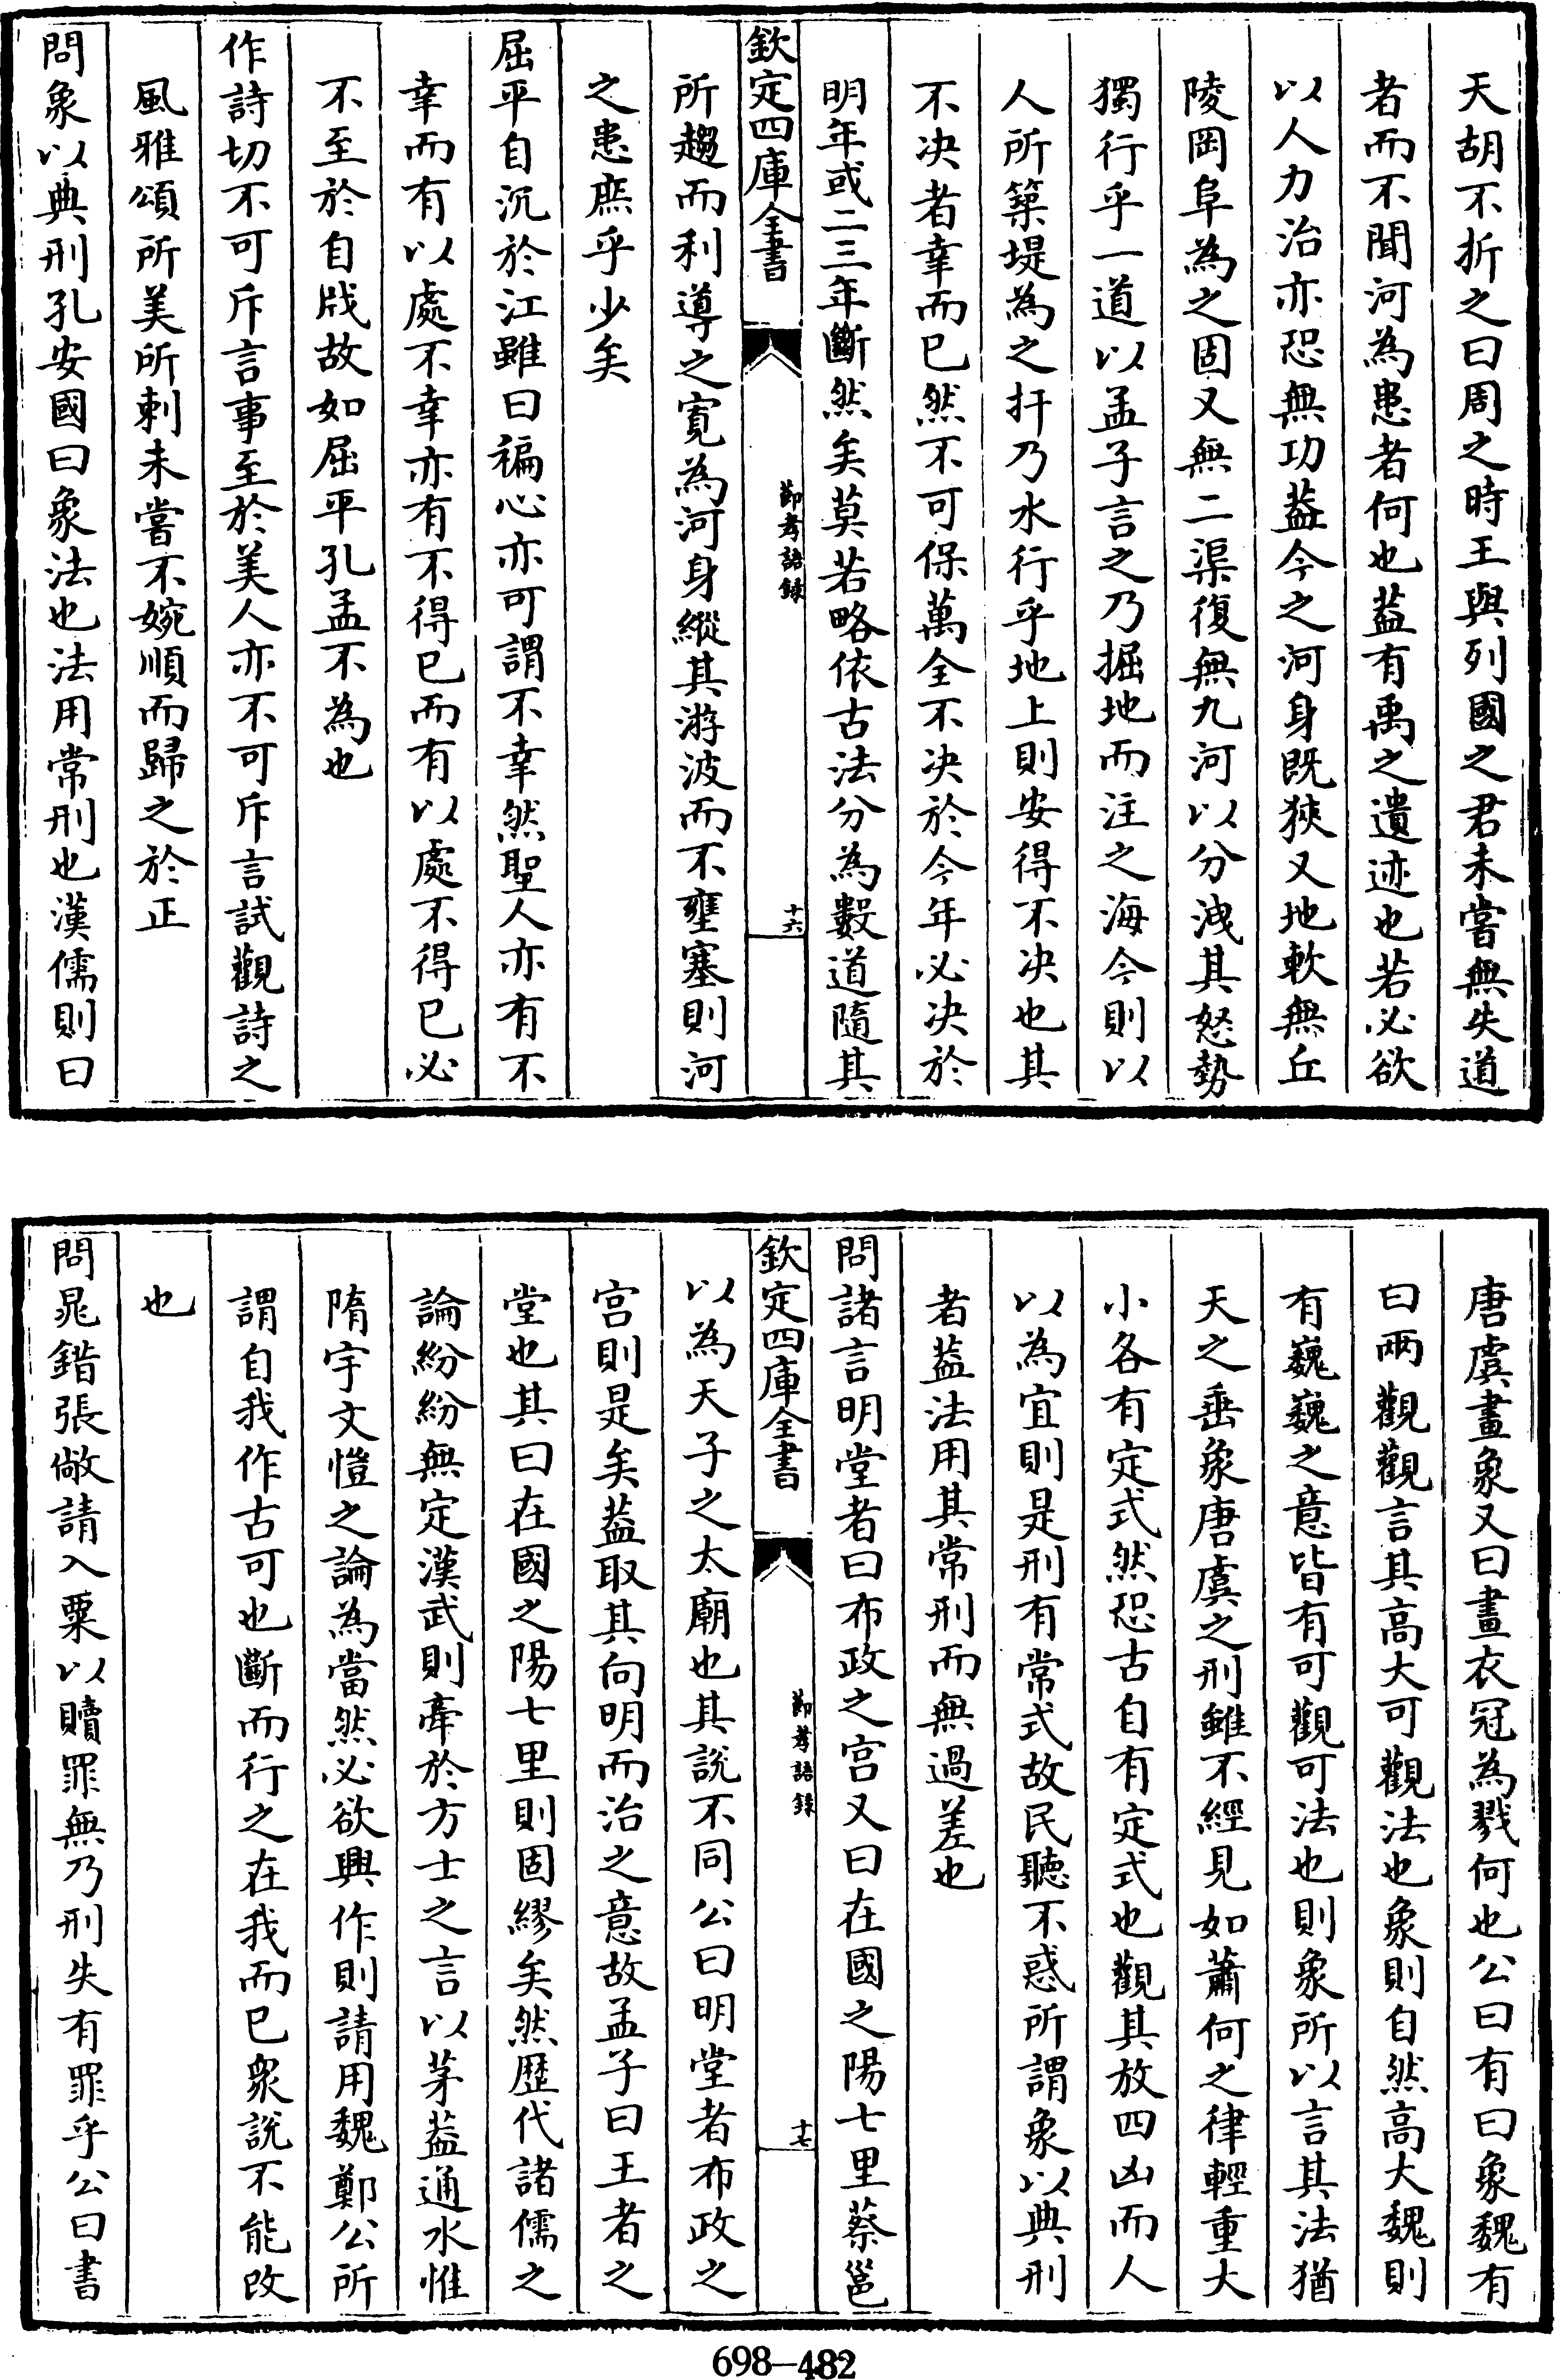 天胡不折之曰周之時王與列國之君未嘗無失道
者而不聞河為患者何也葢有禹之遺迹也若必欲
以人力治亦恐無功葢今之河身既狹又地軟無丘
陵岡阜為之固又無二渠復無九河以分洩其怒勢
獨行乎一道以孟子言之乃掘地而注之海今則以
人所築堤為之扞乃水行乎地上則安得不决也其
不决者幸而已然不可保萬全不决於今年必决於
明年或二三年斷然矣莫若略依古法分為數道隨其
欽定四庫全書
節孝語錄
十六
所趨而利導之寛為河身縱其游波而不壅塞則河
之患庶乎少矣
屈平自沉於江雖曰褊心亦可謂不幸然聖人亦有不
幸而有以處不幸亦有不得已而有以處不得已必
不至於自戕故如屈平孔孟不為也
作詩切不可斥言事至於美人亦不可斥言試觀詩之
風雅頌所美所刺未嘗不婉順而歸之於正
問象以典刑孔安國曰象法也法用常刑也漢儒則曰
唐虞畫象又曰畫衣冠為戮何也公曰有曰象魏有
曰兩觀觀言其高大可觀法也象則自然高大魏則
有巍巍之意皆有可觀可法也則象所以言其法猶
天之垂象唐虞之刑雖不經見如蕭何之律輕重大
小各有定式然恐古自有定式也觀其放四凶而人
以為宜則是刑有常式故民聽不惑所謂象以典刑
者葢法用其常刑而無過差也
問諸言明堂者曰布政之宫又曰在國之陽七里蔡邕
欽定四庫全書
節孝語錄
十七
以為天子之太廟也其說不同公曰明堂者布政之
宫則是矣葢取其向明而治之意故孟子曰王者之
堂也其曰在國之陽七里則固繆矣然歷代諸儒之
論紛紛無定漢武則牽於方士之言以茅葢通水惟
隋宇文愷之論為當然必欲興作則請用魏鄭公所
謂自我作古可也斷而行之在我而已衆說不能改
也
問晁錯張敞請入粟以贖罪無乃刑失有罪乎公曰書
698-482